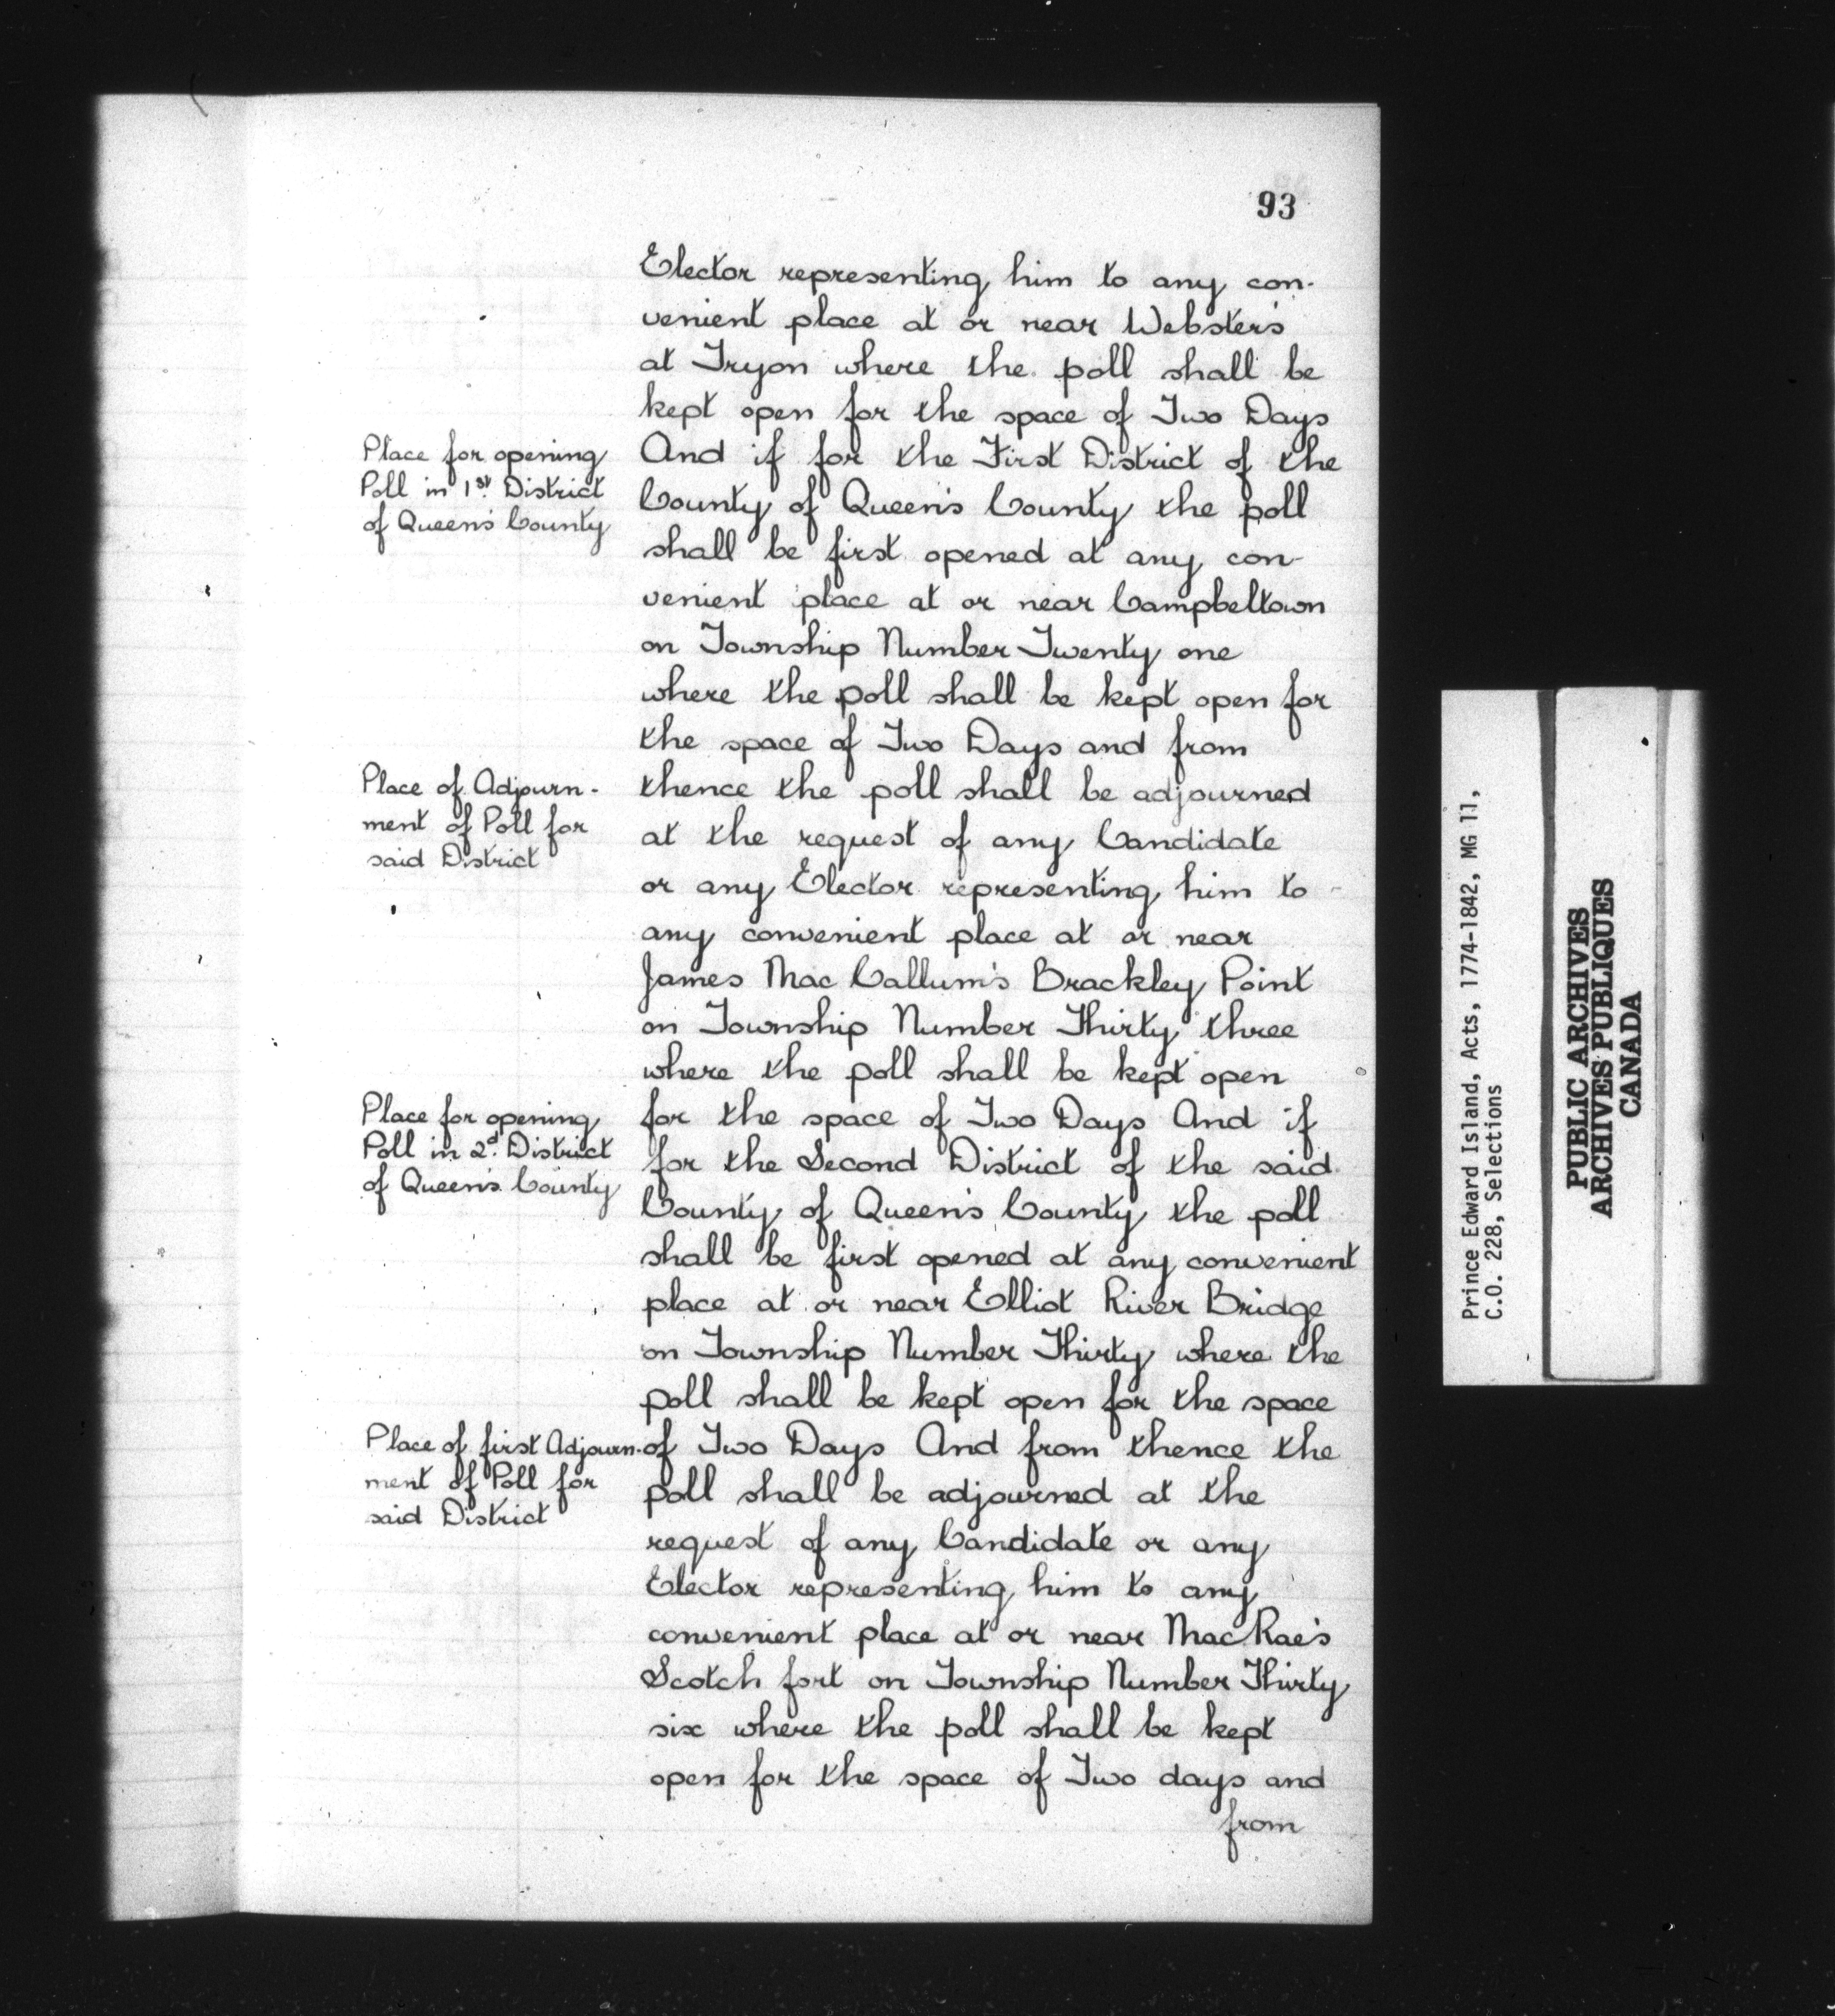 93
Elector representing him to any con-
venient place at or near Webster's
at Tryon where the poll shall be
kept open for the space of Two Days
Place for opening
Poll in 1st. District
of Queen's County
And if for the First District of the
County of Queen's County the poll
shall be first opened at any con-
venient place at or near Campbeltown
on Township Number Twenty one
where the poll shall be kept open for
the space of Two Days and from
Place of Adjourn-
ment of Poll for
said District
thence the poll shall be adjourned
at the request of any Candidate
or any Elector representing him to
any convenient place at or near
James Mac Callum's Brackley Point
on Township Number Thirty three
where the poll shall be kept open
Place for opening
Poll in 2d. District
of Queen's County
for the space of Two Days And if
for the Second District of the said
County of Queen's County the poll
shall be first opened at any convenient
place at or near Elliot River Bridge
on Township Number Thirty where the
poll shall be kept open for the space
Place of first Adjourn-
ment of Poll for
said District
of Two Days And from thence the
poll shall be adjourned at the
request of any Candidate or any
Elector representing him to any
convenient place at or near MacRae's
Scotch fort on Township Number Thirty
six where the poll shall be kept
open for the space of Two days and
from
Prince Edward Island, Acts, 1774-1842, MG 11,
C.O. 228, Selections
PUBLIC ARCHIVES
ARCHIVES PUBLIQUES
CANADA